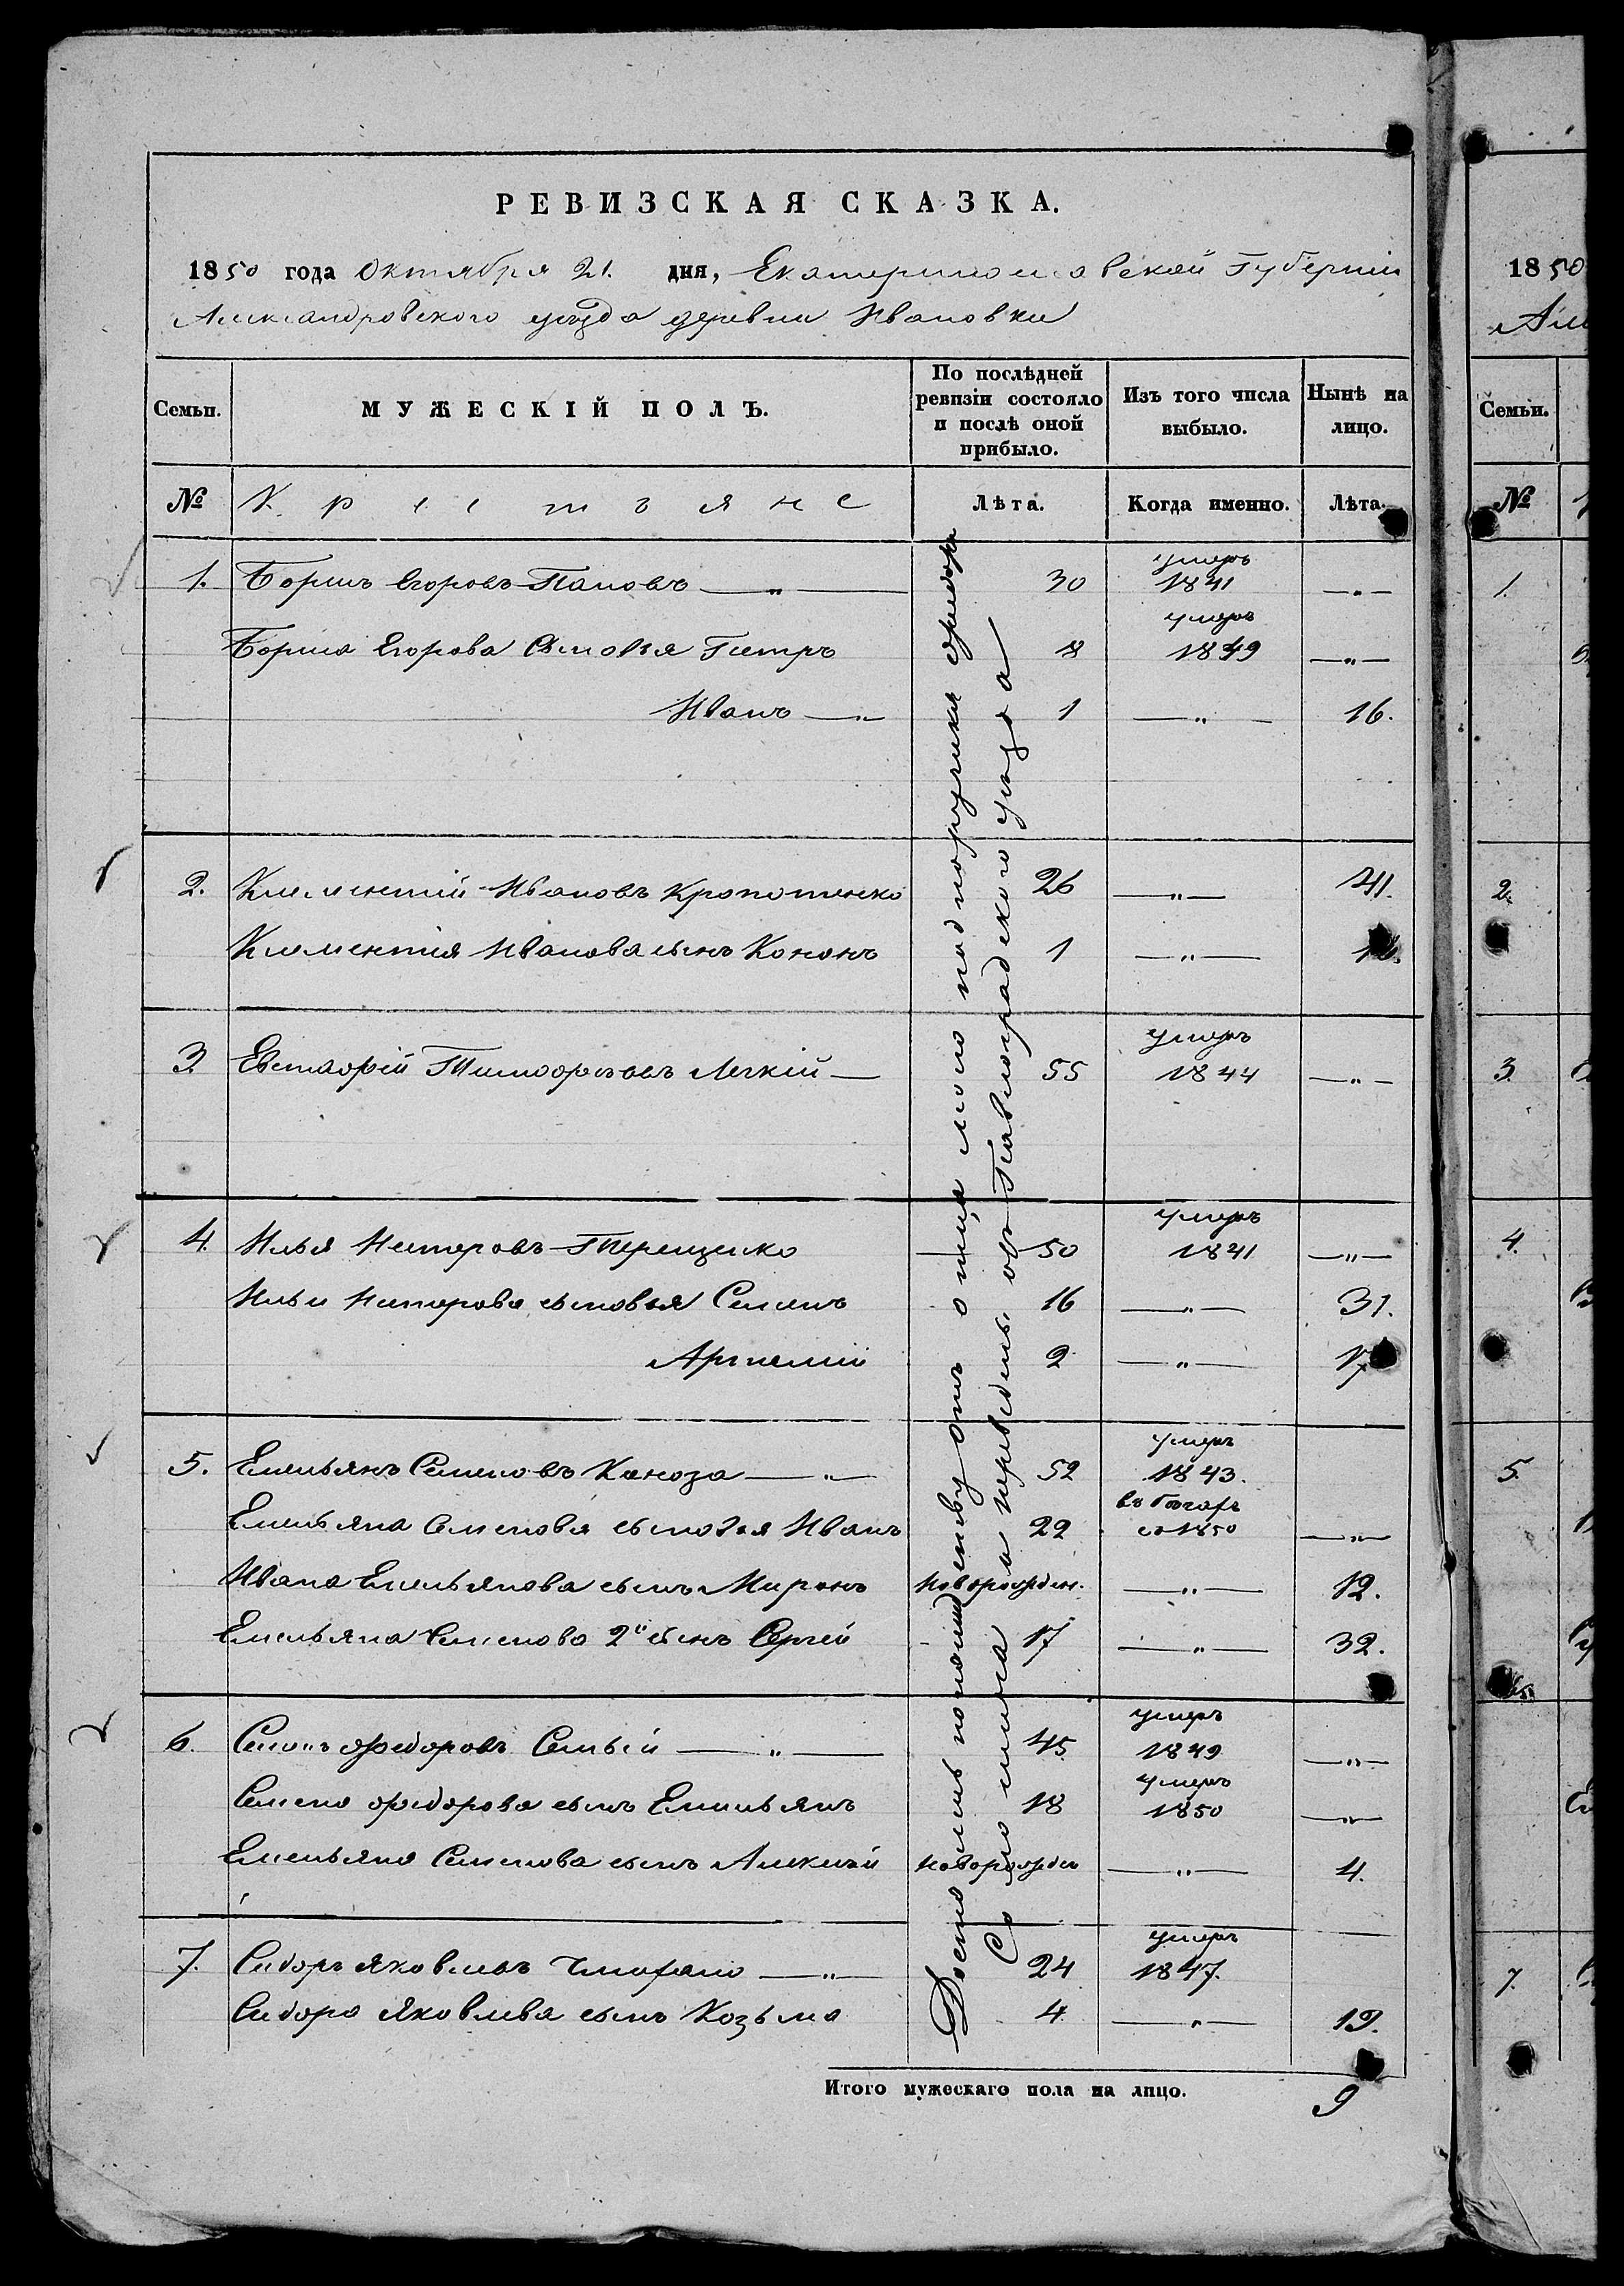 РЕВИЗСКАЯ СКАЗКА.
1850 года Октября 21. дня, Екатеринославской Губернии
Александровского уезда деревни Ивановки
Семьи.
МУЖЕСКІЙ ПОЛЪ.
По послѣдней ревизіи состояло и послѣ оной прибыло.
Изъ того числа выбыло.
Нынѣ на лицо.
№ Крестьяне Лѣта. Когда именно. Лѣта.
умеръ
1. Борисъ Егоровъ Поповъ —"— 30 1841 —"—
умеръ
Бориса Егорова Сыновья Петръ 8 1849 —"—
Иванъ —"— 1 —"— 16.
2. Климентий Ивановъ Кропотенко 26 —"— 41.
Климентия Иванова сынъ Кононъ 1 —"— 16.
умеръ
3. Евстафий Тимофеевъ Легкий — 55 1844 —"—
умеръ
4. Илья Нестеровъ Терещенко 50 1841 —"—
Ильи Нестерова сыновья Семенъ 16 —"— 31.
Артемий 2 —"— 17
умеръ
5. Емельянъ Семеновъ Каноза —"— 52 1843.
въ бегахъ
Емельяна Семенова сыновья Иванъ 22 съ 1850 —"—
Ивана Емельянова сынъ Миронъ новорожден. —"— 12.
Емельяна Семенова 2й сынъ Сергей 17 —"— 32.
умеръ
6. Семенъ Федоровъ —"— 45 1849 —"—
умеръ
Семена Федорова сынъ Емельянъ 18 1850 —"—
Емельяна Семенова сынъ Алексей новорожден —"— 4.
умеръ
7. Сидоръ Яковлевъ —"— 24 1847.
Сидора Яковлева сынъ Козьма 4 —"— 19.
Достались по наследству отъ отца моего подпоручика
и переведены изъ Павлоградского уезда
Итого мужескаго пола на лицо. 9
1850
Семьи.
№
1.
2.
3.
4.
5.
7.